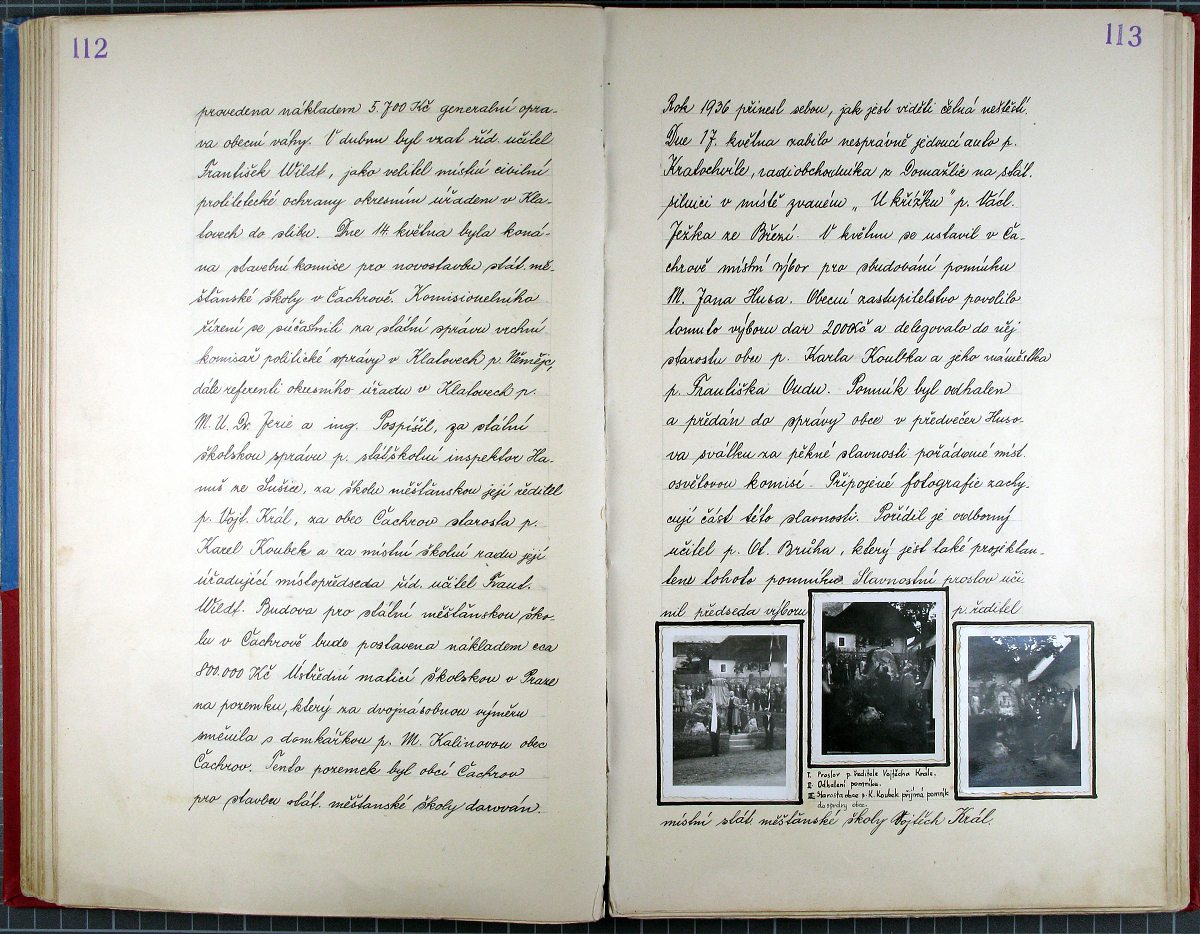 112
provedena nákladem 5.700 Kč generalní opra-
va obecní váhy. V dubnu byl vzat říd. učitel
František Wildt, jako velitel místní civilní
protiletecké ochrany okresním úřadem v Kla-
tovech do slibu. Dne 14. května byla koná-
na stavební komise pro novostavbu stát. mě-
šťanské školy v Čachrově. Komisionelního
řízení se súčastnili za státní správu vrchní
komisař politické správy v Klatovech p. Němejc,
dále referenti okresního úřadu v Klatovech p.
M. U. Dr. Jerie a ing. Pospíšil, za státní
školskou správu p. stát.školní inspektor Ha-
nuš ze Sušice, za školu měšťanskou její ředitel
p. Vojt. Král, za obec Čachrov starosta p.
Karel Koubek a za místní školní radu její
úřadující místopředseda říd. učitel Frant.
Wildt. Budova pro státní měšťanskou ško-
lu v Čachrově bude postavena nákladem cca
800.000 Kč Ústřední maticí školskou v Praze
na pozemku, který za dvojnásobnou výměru
směnila s domkářkou p. M. Kalinovou obec
Čachrov. Tento pozemek byl obcí Čachrov
pro stavbu stát. měšťanské školy darován.
113
Rok 1936 přinesl sebou, jak jest viděti četná neštěstí.
Dne 17. května zabilo nesprávně jedoucí auto p.
Kratochvíle, radioobchodníka z Domažlic na stát.
silnici v místě zvaném „U křížku" p. Václ.
Ježka ze Březí. V květnu se ustavil v Ča-
chrově místní výbor pro zbudování pomníku
M. Jana Husa. Obecní zastupitelstvo povolilo
tomuto výboru dar 200Kč a delegovalo do něj
starostu obce p. Karla Koubka a jeho náměstka
p. Františka Oudu. Pomník byl odhalen
a předán do správy obce v předvečer Huso-
va svátku za pěkné slavnosti pořádané míst.
osvětovou komisí. Připojené fotografie zachy-
cují část této slavnosti. Pořídil je odborný
učitel p. Ot. Brůha, který jest také projektan-
tem tohoto pomníku. Slavnostní proslov uči-
nil předseda výboru p. ředitel
I. Proslov p. ředitele Vojtěcha Krále.
II. Odhalení pomníku.
III. Starosta obce p. K. Koubek přijímá pomník
do správy obce.
místní stát. měšťanské školy Vojtěch Král.